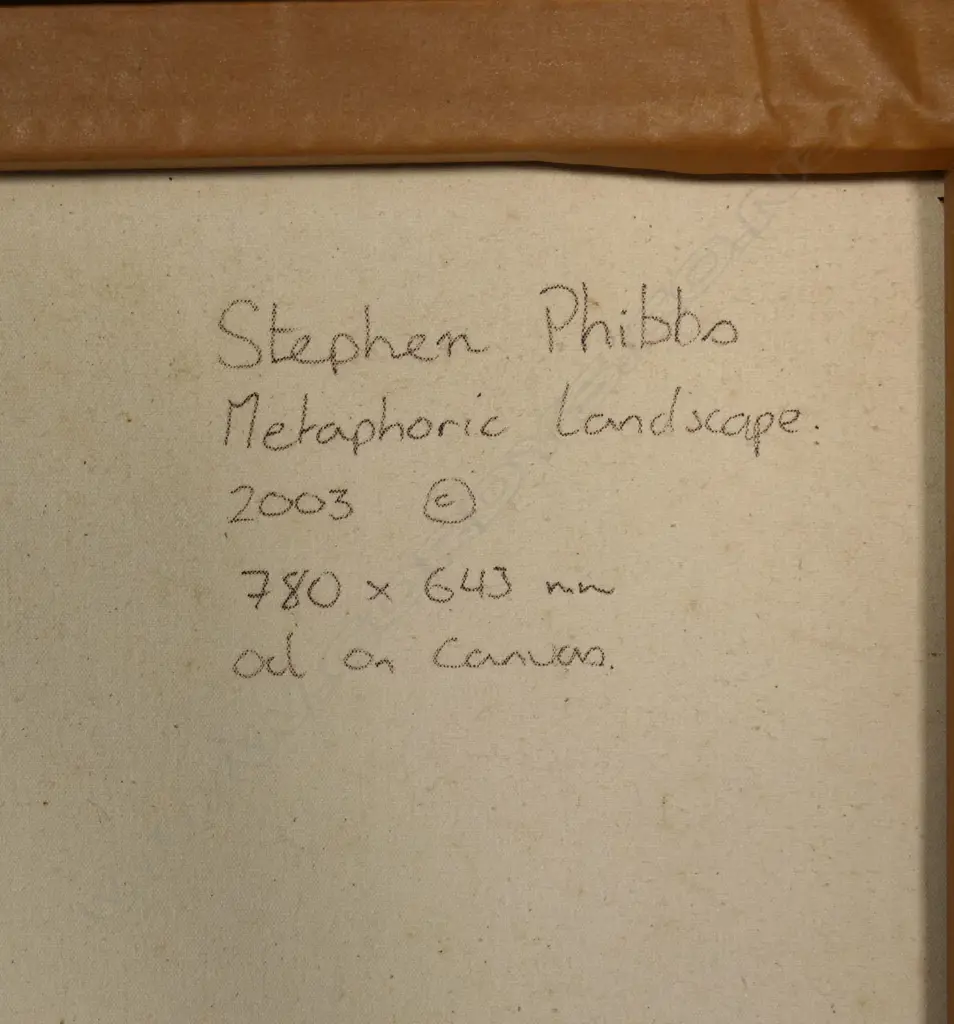 Stephen Phibbs
Metaphoric Landscape.
2003 ©
780 x 643 mm
oil on Canvas.